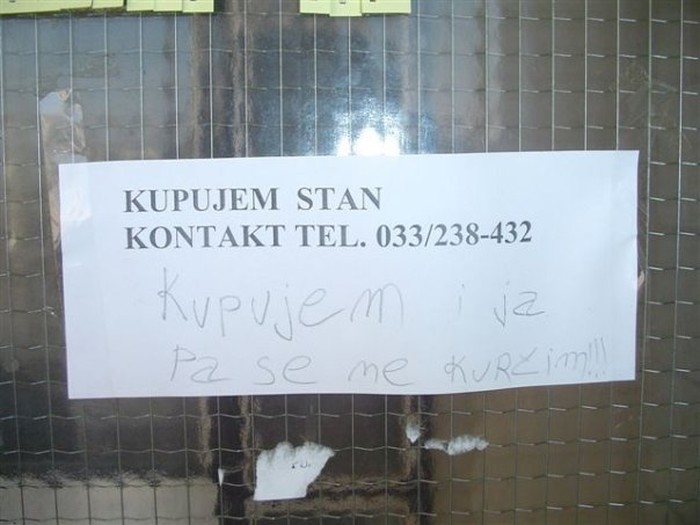 KUPUJEM STAN
KONTAKT TEL. 033/238-432
Kupujem i ja
Pa se ne kurčim!!!